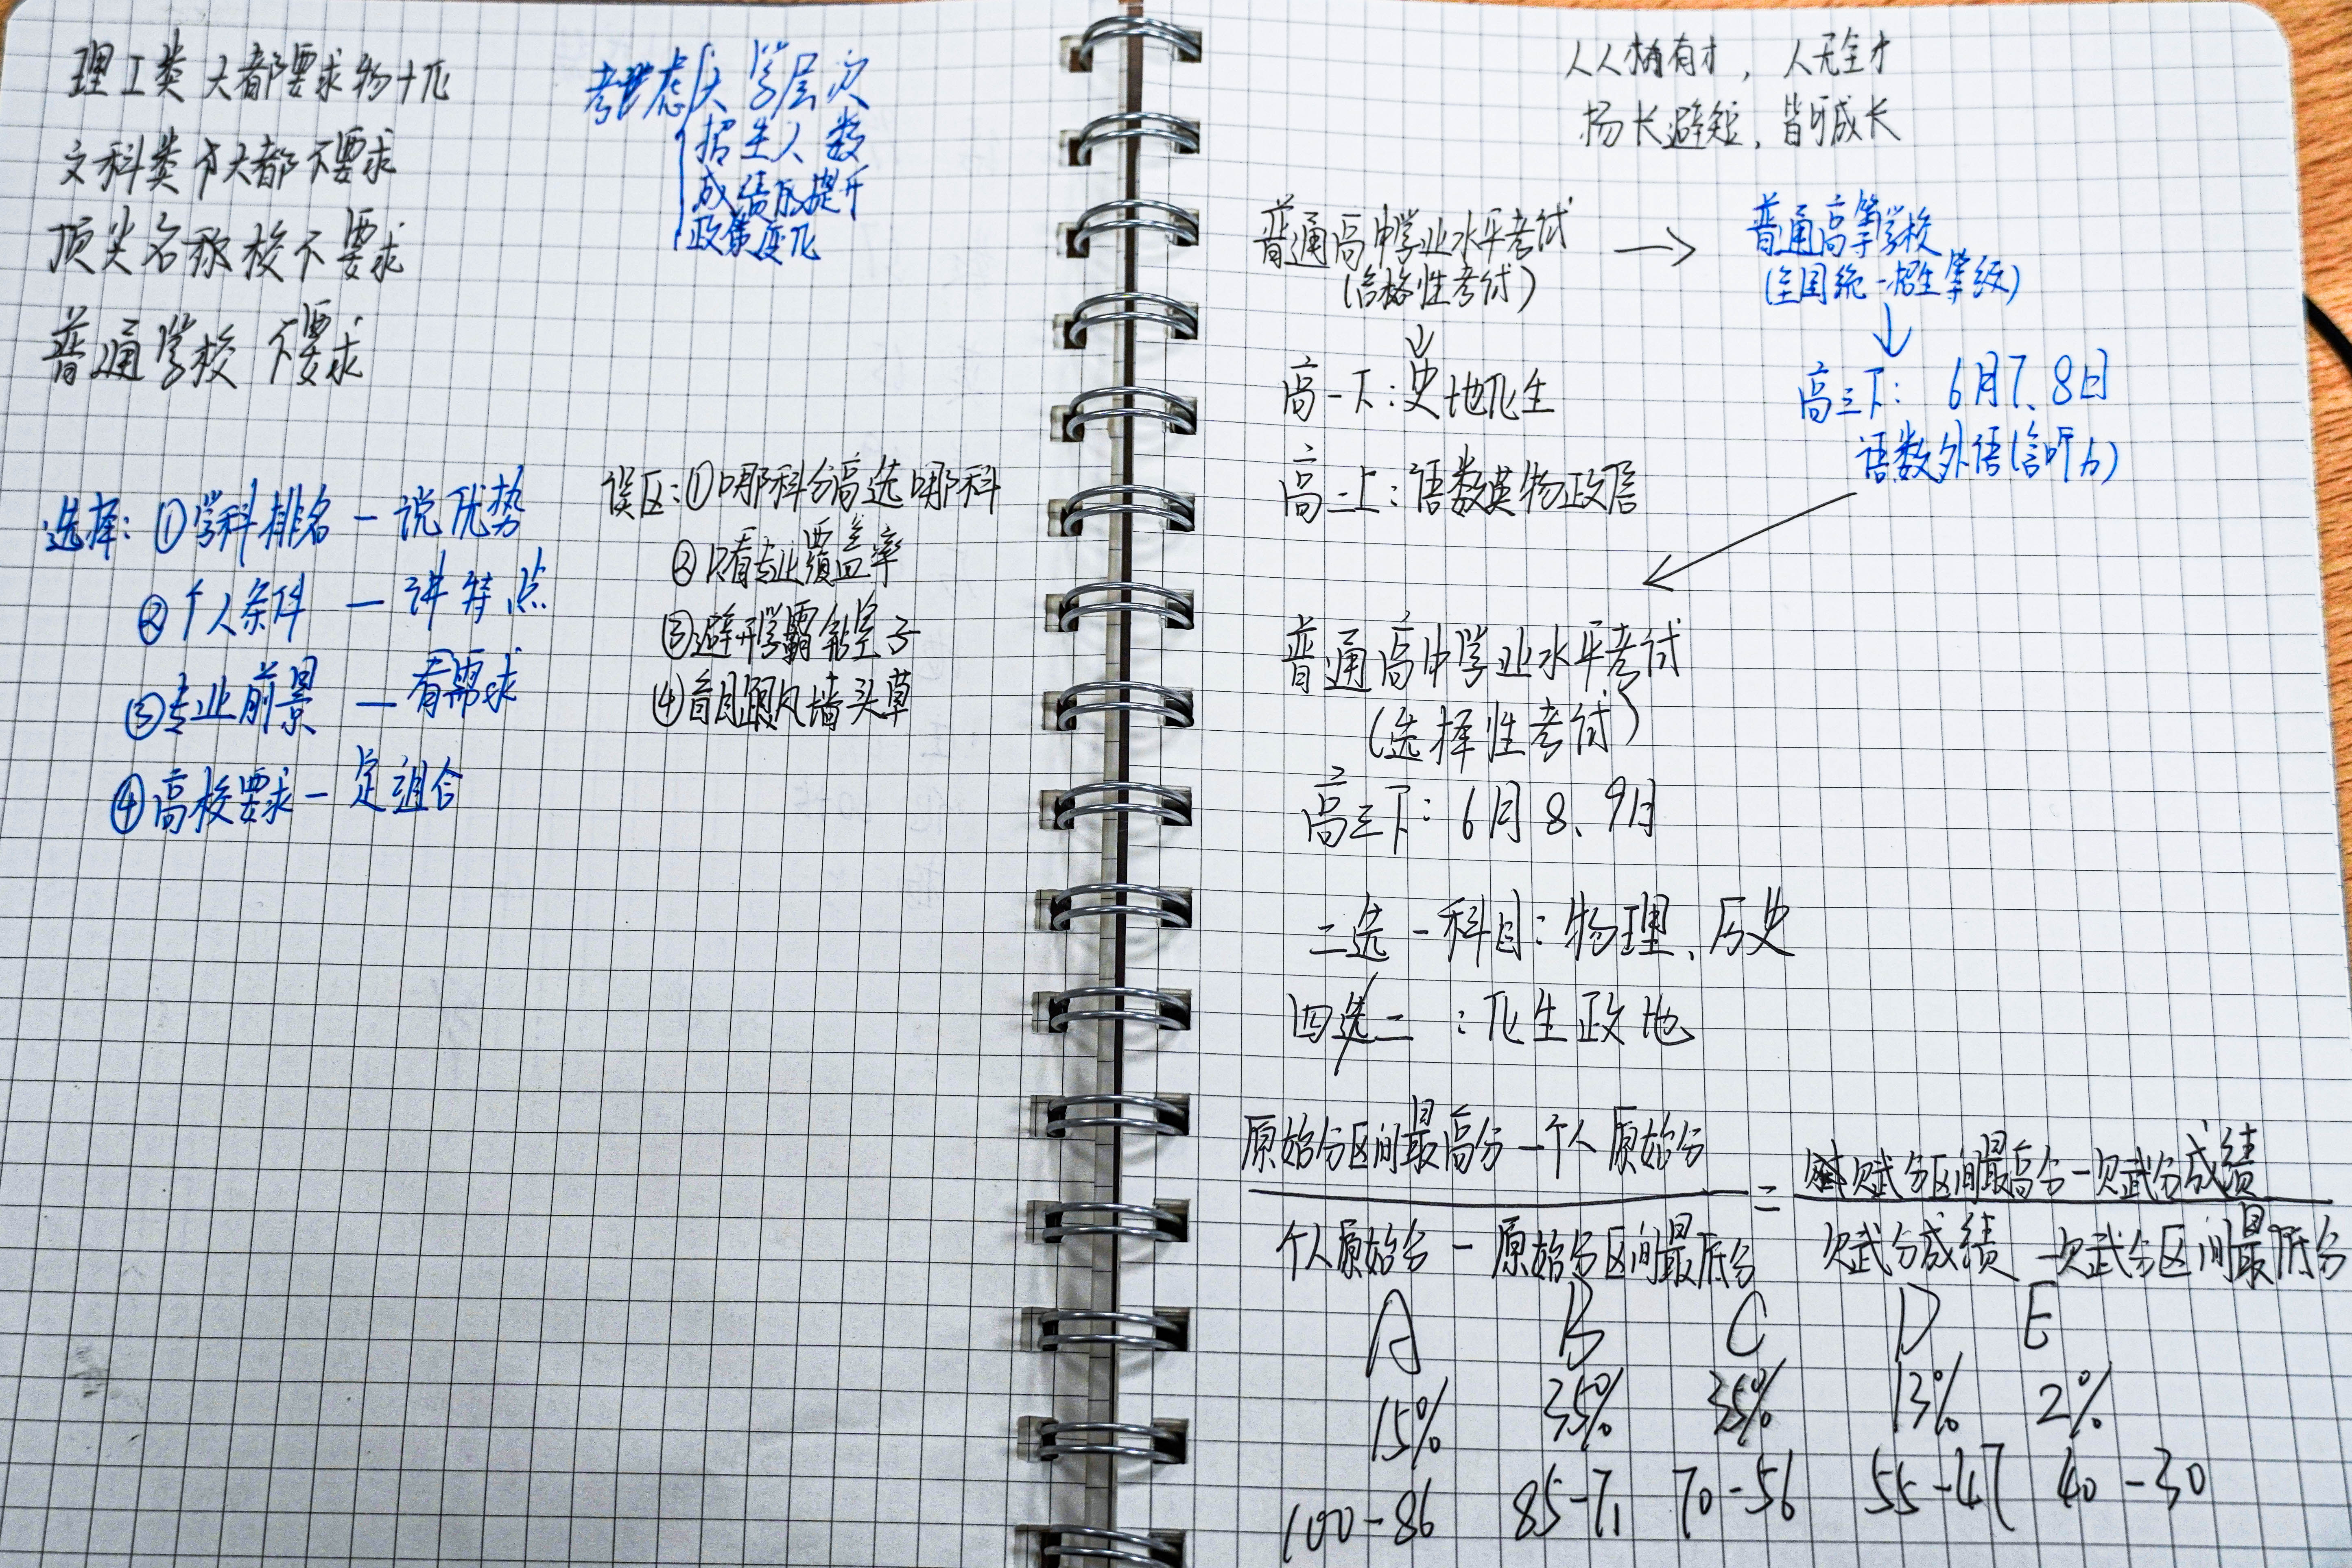 理工类大都要求物十化
文科类大都不要求
顶尖名称校不要求
普通学校不要求
考虑大学层次
招生人数
成绩的提升
政策变化
选择：①学科排名－说优势
②个人条件－讲特点
③专业前景－看需求
④高校要求－定组合
误区：①哪科分高选哪科
②只看专业覆盖率
③避开学霸钻空子
④盲目跟风墙头草
人人有才，人无全才
扬长避短，皆可成长
普通高中学业水平考试
(合格性考试)
→
普通高等学校
(全国统一招生等级)
高一下：史地化生
高二上：语数英物政信
高三下：6月7、8日
语数外语(含听力)
普通高中学业水平考试
(选择性考试)
高三下：6月8、9日
二选一科目：物理、历史
四选二：化生政地
原始分区间最高分－个人原始分
个人原始分－原始分区间最低分
=
赋分区间最高分－赋分成绩
赋分成绩－赋分区间最低分
A B C D E
15% 35% 35% 13% 2%
100-86 85-71 70-56 55-41 40-30